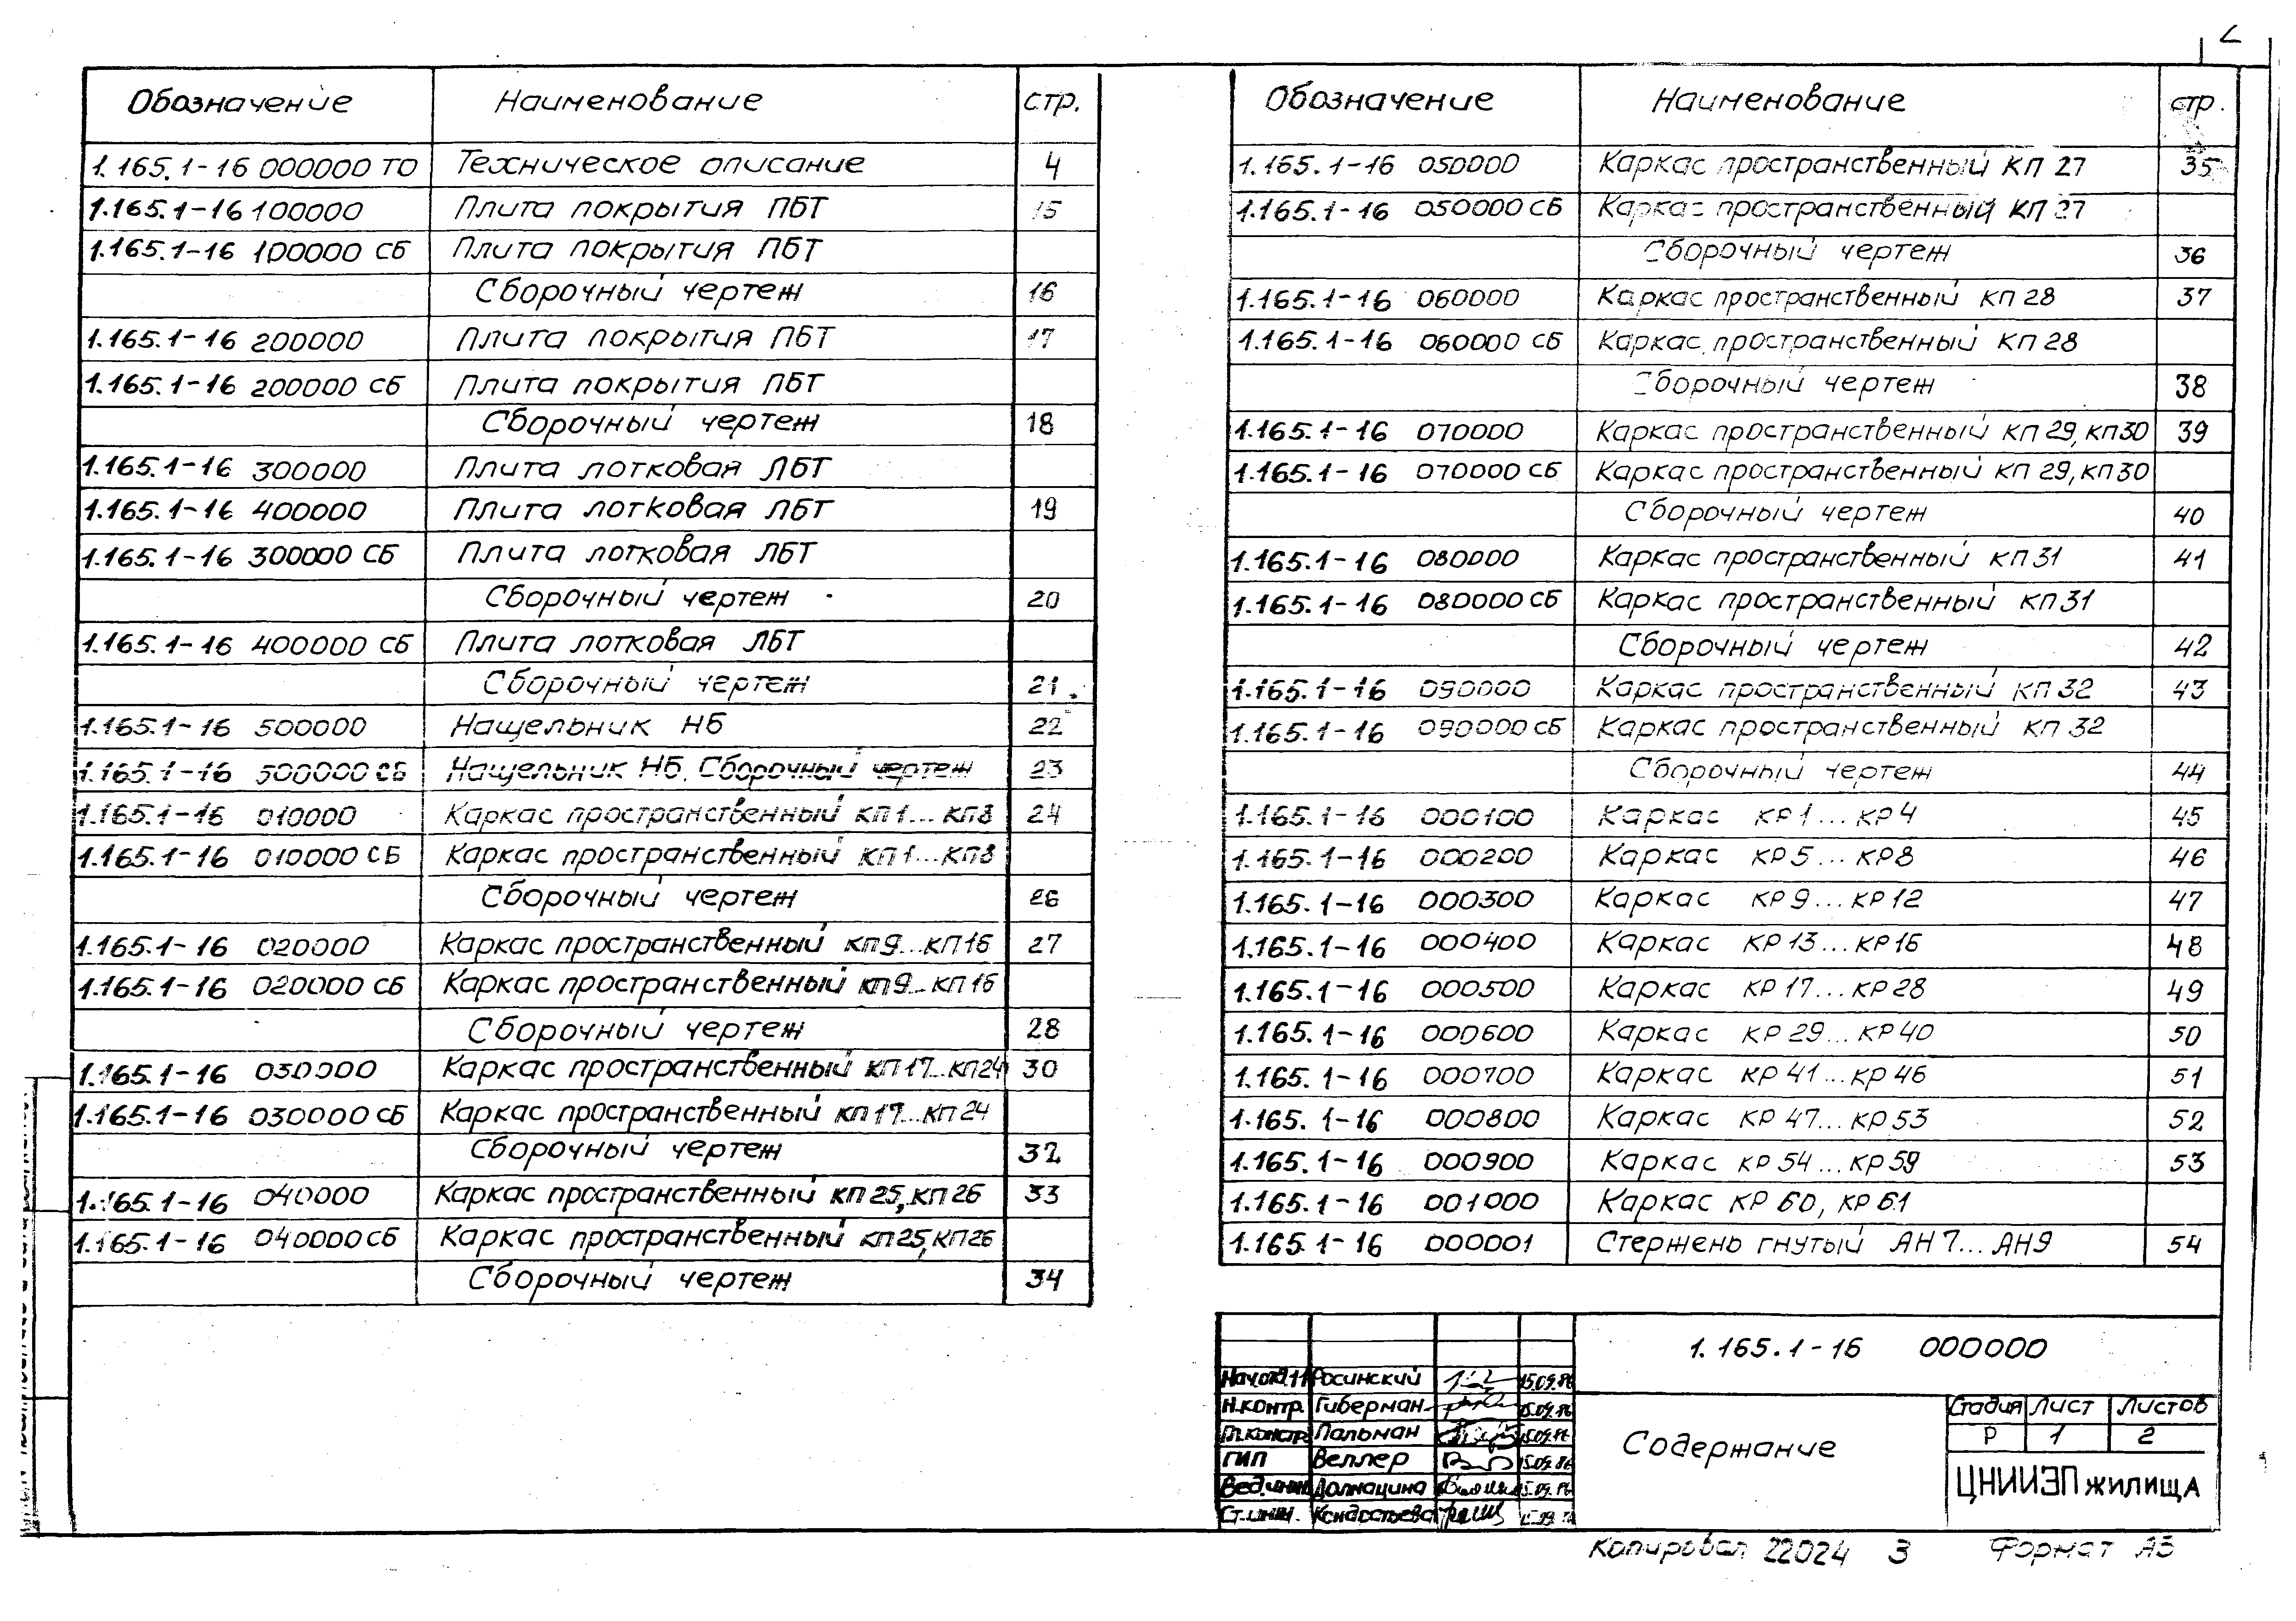 2
Обозначение Наименование стр.
1.165.1-16 000000 ТО Техническое описание 4
1.165.1-16 100000 Плита покрытия ПБТ 15
1.165.1-16 100000 СБ Плита покрытия ПБТ
Сборочный чертеж 16
1.165.1-16 200000 Плита покрытия ПБТ 17
1.165.1-16 200000 СБ Плита покрытия ПБТ
Сборочный чертеж 18
1.165.1-16 300000 Плита лотковая ЛБТ
1.165.1-16 400000 Плита лотковая ЛБТ 19
1.165.1-16 300000 СБ Плита лотковая ЛБТ
Сборочный чертеж 20
1.165.1-16 400000 СБ Плита лотковая ЛБТ
Сборочный чертеж 21
1.165.1-16 500000 Нащельник НБ 22
1.165.1-16 500000 СБ Нащельник НБ. Сборочный чертеж 23
1.165.1-16 010000 Каркас пространственный КП1...КП8 24
1.165.1-16 010000 СБ Каркас пространственный КП1...КП8
Сборочный чертеж 26
1.165.1-16 020000 Каркас пространственный КП9...КП16 27
1.165.1-16 020000 СБ Каркас пространственный КП9...КП16
Сборочный чертеж 28
1.165.1-16 030000 Каркас пространственный КП17...КП24 30
1.165.1-16 030000 СБ Каркас пространственный КП17...КП24
Сборочный чертеж 32
1.165.1-16 040000 Каркас пространственный КП25, КП26 33
1.165.1-16 040000 СБ Каркас пространственный КП25, КП26
Сборочный чертеж 34
Обозначение Наименование стр.
1.165.1-16 050000 Каркас пространственный КП 27 35
1.165.1-16 050000 СБ Каркас пространственный КП 27
Сборочный чертеж 36
1.165.1-16 060000 Каркас пространственный КП 28 37
1.165.1-16 060000 СБ Каркас пространственный КП 28
Сборочный чертеж 38
1.165.1-16 070000 Каркас пространственный КП 29, КП30 39
1.165.1-16 070000 СБ Каркас пространственный КП 29, КП30
Сборочный чертеж 40
1.165.1-16 080000 Каркас пространственный КП31 41
1.165.1-16 080000 СБ Каркас пространственный КП31
Сборочный чертеж 42
1.165.1-16 090000 Каркас пространственный КП 32 43
1.165.1-16 090000 СБ Каркас пространственный КП 32
Сборочный чертеж 44
1.165.1-16 000100 Каркас КР1...КР4 45
1.165.1-16 000200 Каркас КР5...КР8 46
1.165.1-16 000300 Каркас КР9...КР12 47
1.165.1-16 000400 Каркас КР13...КР16 48
1.165.1-16 000500 Каркас КР17...КР28 49
1.165.1-16 000600 Каркас КР29...КР40 50
1.165.1-16 000700 Каркас КР41...КР46 51
1.165.1-16 000800 Каркас КР47...КР53 52
1.165.1-16 000900 Каркас КР54...КР59 53
1.165.1-16 001000 Каркас КР60, КР61
1.165.1-16 000001 Стержень гнутый АН7...АН9 54
1.165.1-16 000000
Нач.отд.11 Росинский 15.09.86
Н.контр. Гиберман 15.09.86
Гл.констр. Пальман 15.09.86
ГИП Веллер 15.09.86
Вед.инж. 15.09.86
Ст.инж.
Содержание
Стадия Лист Листов
Р 1 2
ЦНИИЭП жилища
Копировал 22024 3 Формат А3